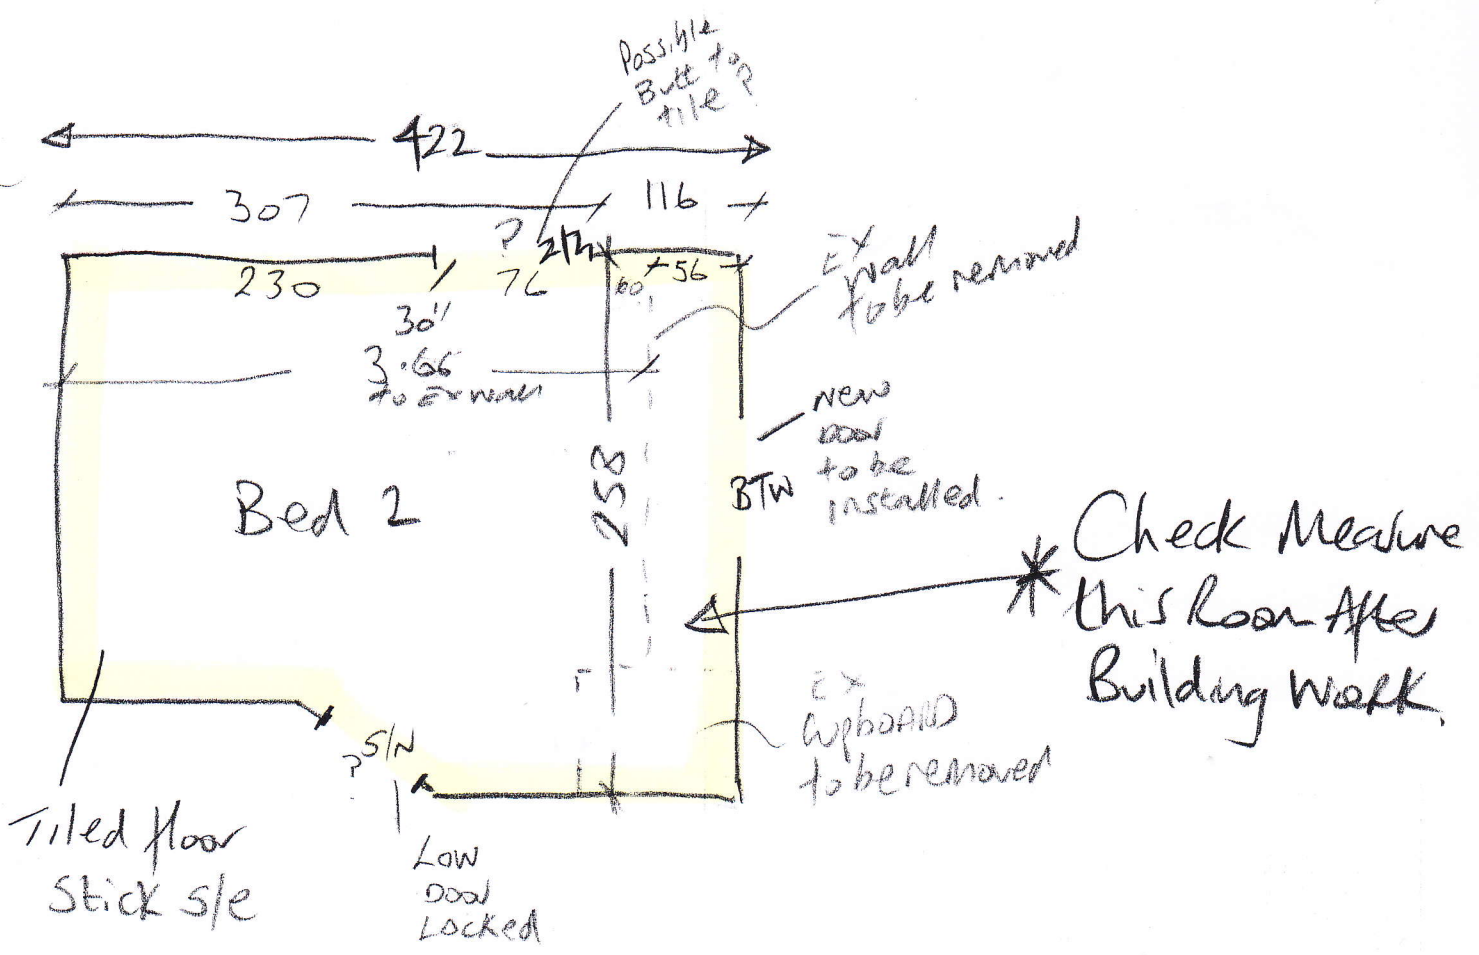 Possible
Butt to
tile?
422
307
116
?
230
76
60
56
30"
3.66
to Ex wall
Ex
wall
to be removed
258
New
Door
to be
installed.
BTW
Bed 2
Check Measure
this Room After
Building Work.
Ex
CupboARD
to be removed
S/N
?
Tiled floor
Stick s/e
Low
Door
Locked